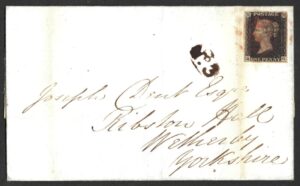 POSTAGE
ONE PENNY
Joseph Dent Esqre
Ribston Hall
Wetherby
Yorkshire